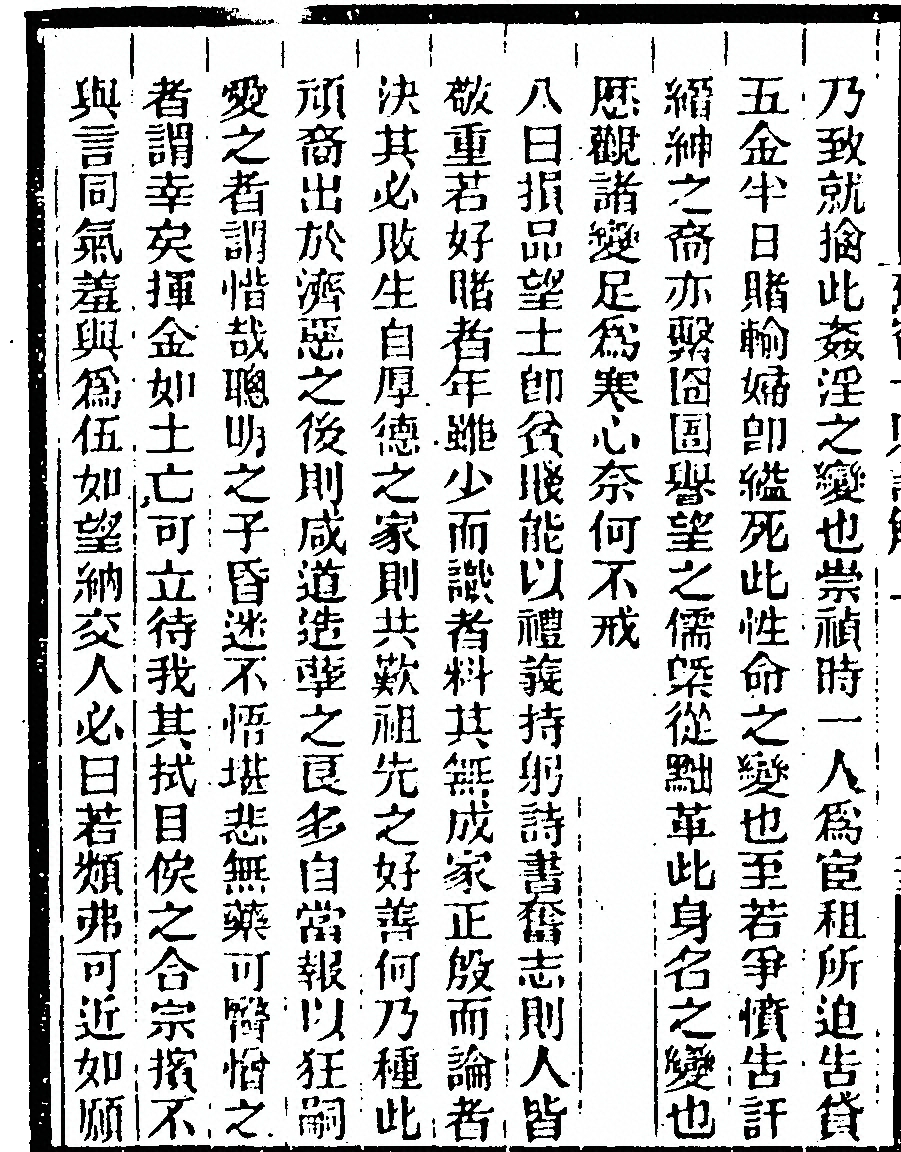 乃致就擒此姦淫之變也崇禎時一人爲宦租所迫告貸
五金半日賭輸婦卽縊死此性命之變也至若爭憤告訐
縉紳之裔亦繫囹圄譽望之儒槩從黜革此身名之變也
歷觀諸變足爲寒心奈何不戒
八曰損品望士卽貧賤能以禮義持躬詩書奮志則人皆
敬重若好賭者年雖少而識者料其無成家正殷而論者
決其必敗生自厚德之家則共歎祖先之好善何乃種此
頑裔出於濟惡之後則咸道造孽之良多自當報以狂嗣
愛之者謂惜哉聰明之子昏迷不悟堪悲無藥可醫憎之
者謂幸矣揮金如土亡可立待我其拭目俟之合宗擯不
與言同氣羞與爲伍如望納交人必曰若類弗可近如願